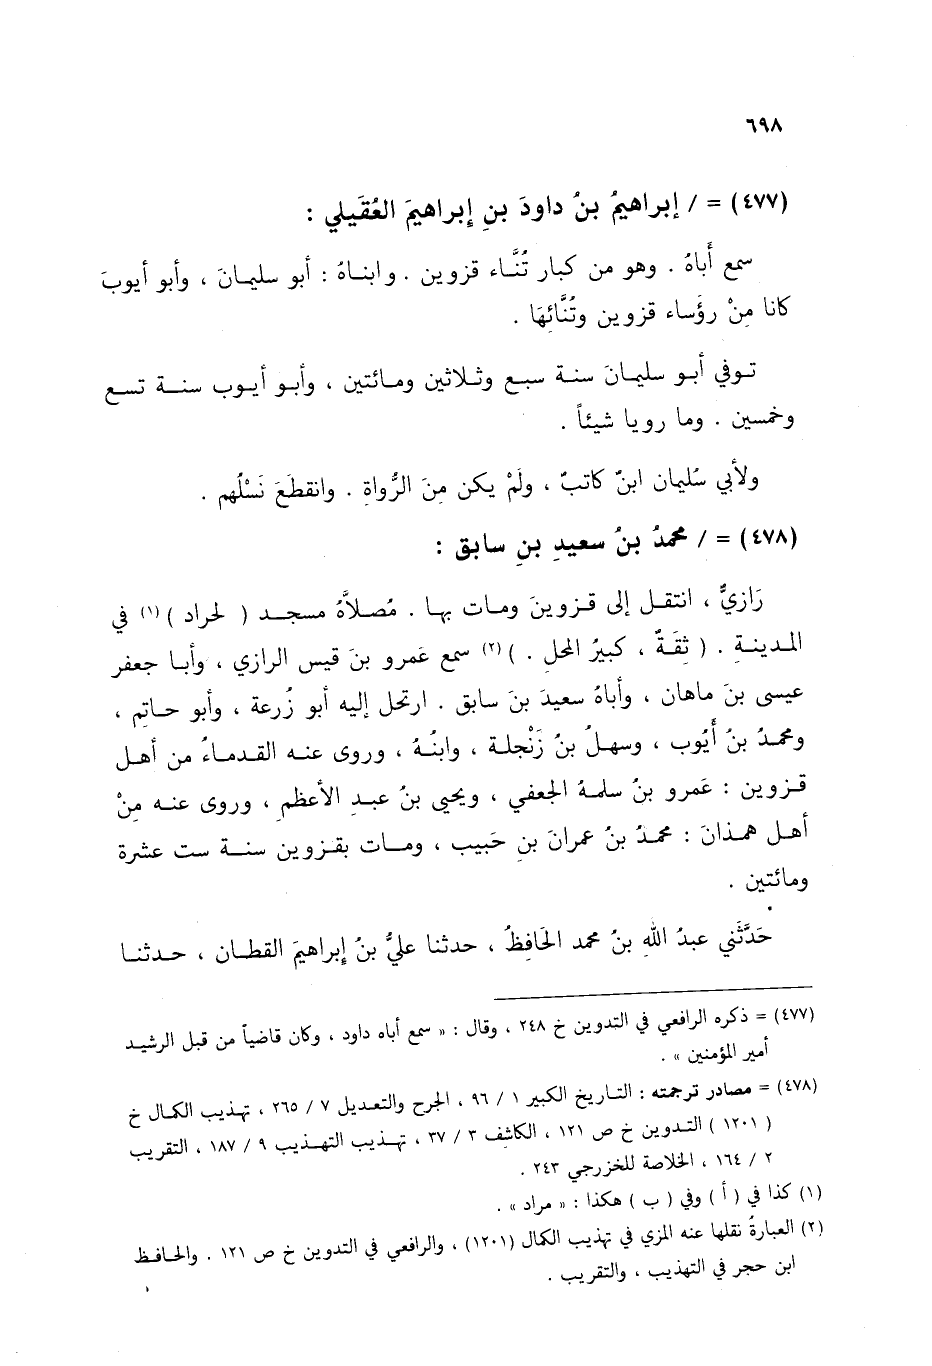 ٦٩٨
(٤٧٧) = / إبراهيمُ بنُ داودَ بنِ إبراهيمَ العُقَيلي :
سمع أَباهُ . وهو من كبار تُنَّاء قزوين . وابناهُ : أبو سليمانَ ، وأبو أيوبَ
كانا مِنْ رؤَساء قزوين وتُنَّائِهَا .
توفي أبو سليمانَ سنة سبع وثلاثين ومائتين ، وأبو أيوب سنة تسع
وخمسين . وما رويا شيئاً .
ولأبي سُليمان ابنٌ كاتبٌ ، ولَمْ يكن مِنَ الرُّواةِ . وانقطَعَ نَسْلُهم .
(٤٧٨) = / محمدُ بنُ سعيدِ بنِ سابق :
رَازيٌّ ، انتقل إلى قزوينَ ومات بها . مُصلاَّهُ مسجد ( لحراد )(١) في
المدينةِ . ( ثِقَةٌ ، كبيرُ المحل . )(٢) سمع عَمرو بنَ قيس الرازي ، وأبا جعفر
عيسى بنَ ماهان ، وأباهُ سعيدَ بنَ سابق . ارتحل إليه أبو زُرعة ، وأبو حاتمٍ ،
ومحمدُ بنُ أَيُوب ، وسهلُ بنُ زَنْجلة ، وابنُهُ ، وروى عنه القدماءُ من أهل
قزوين : عَمرو بنُ سلمةُ الجعفي ، ويحيى بنُ عبدِ الأعظمِ ، وروى عنه مِنْ
أهل همذانَ : محمدُ بنُ عمرانَ بنِ حَبيب ، ومات بقزوين سنة ست عشرة
ومائتين .
حَدَّثَني عبدُ اللهِ بنُ محمد الحَافِظُ ، حدثنا عليُّ بنُ إبراهيمَ القطان ، حدثنا
(٤٧٧) = ذكره الرافعي في التدوين خ ٢٤٨ ، وقال : « سمع أباه داود ، وكان قاضياً من قبل الرشيد
أمير المؤمنين » .
(٤٧٨) = مصادر ترجمته : التاريخ الكبير ١ / ٩٦ ، الجرح والتعديل ٧ / ٢٦٥ ، تهذيب الكمال خ
( ١٢٠١ ) التدوين خ ص ١٢١ ، الكاشف ٣ / ٣٧ ، تهذيب التهذيب ٩ / ١٨٧ ، التقريب
٢ / ١٦٤ ، الخلاصة للخزرجي ٢٤٣ .
(١) كذا في ( أ ) وفي ( ب ) هكذا : « مراد » .
(٢) العبارةُ نقلها عنه المزي في تهذيب الكمال (١٢٠١) ، والرافعي في التدوين خ ص ١٢١ . والحافظ
ابن حجر في التهذيب ، والتقريب .